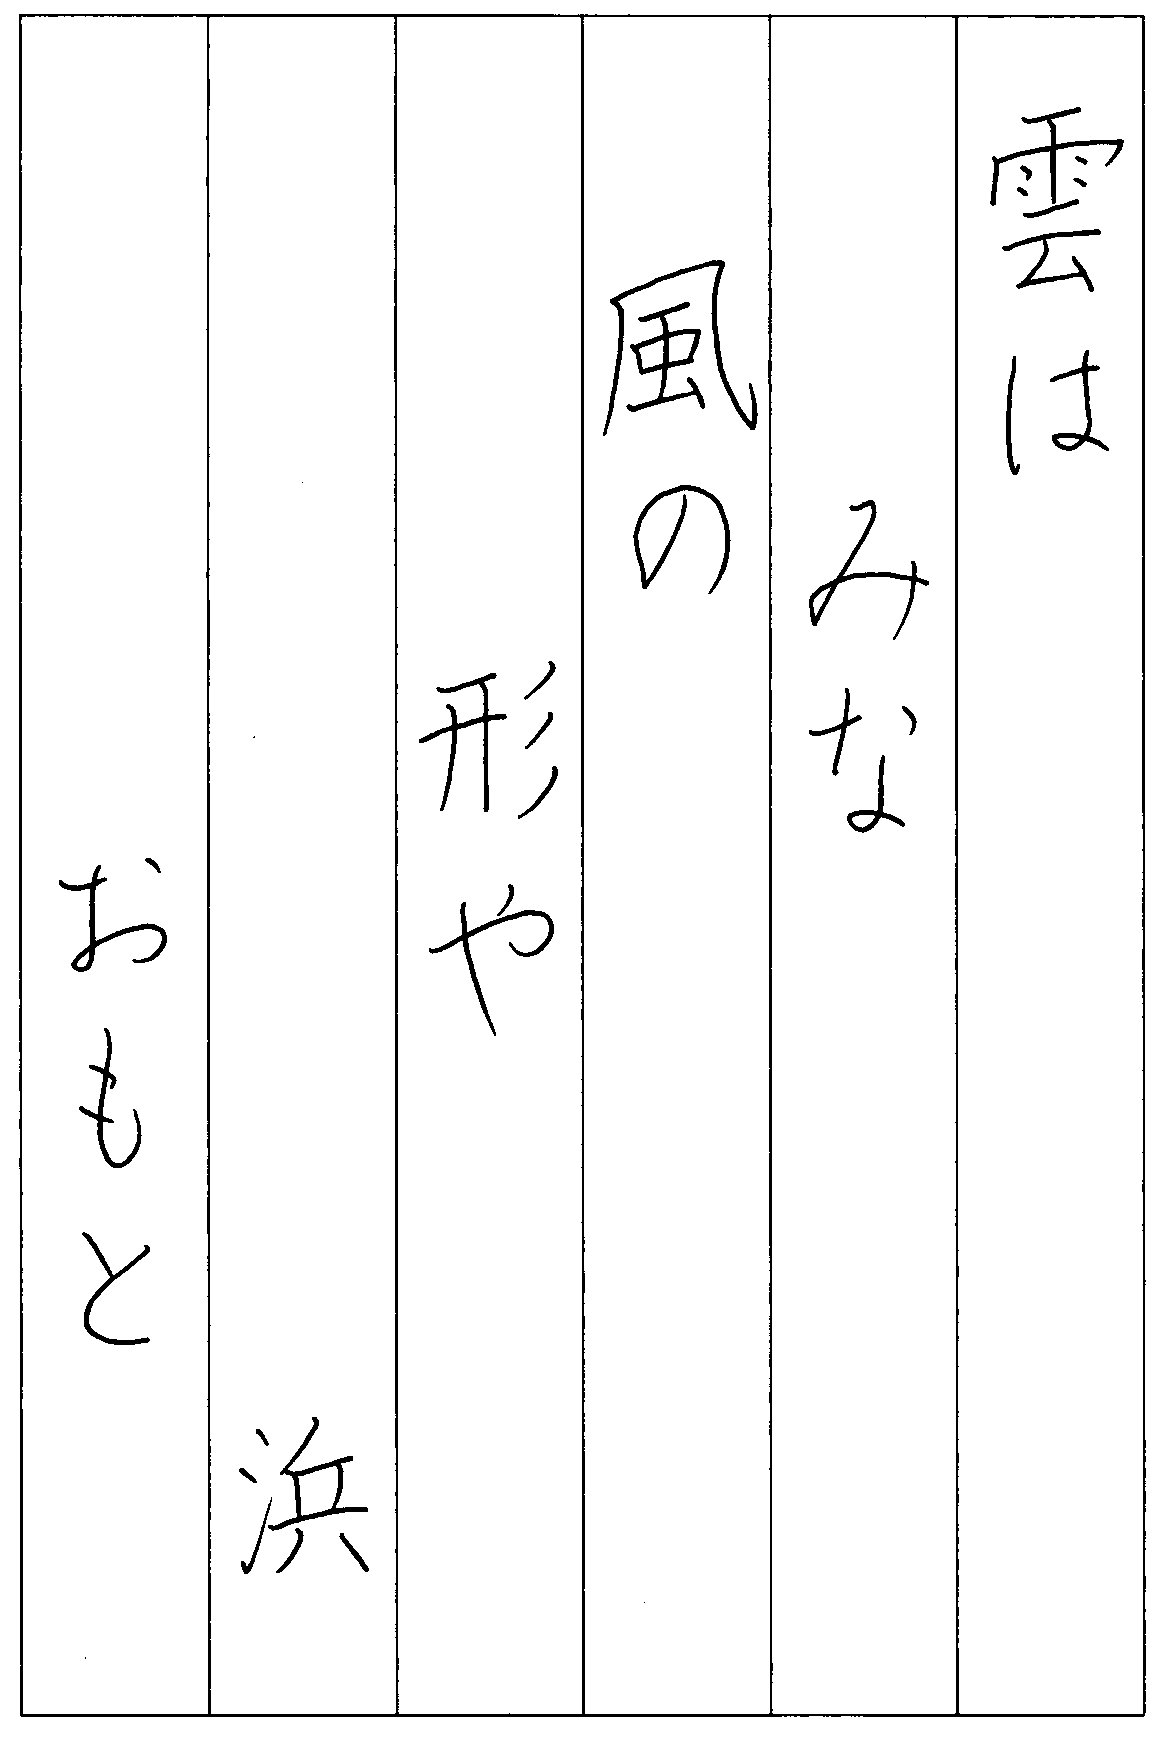 雲は
みな
風の
形や
浜
おもと